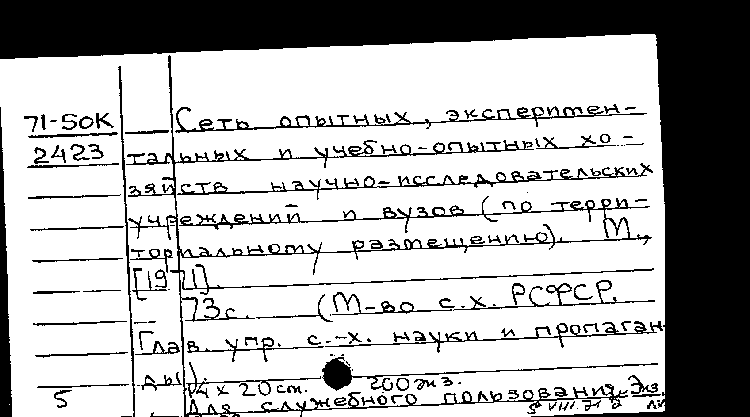 71-50К Сеть опытных, эксперимен-
2423 тальных и учебно-опытных хо-
зяйств научно-исследовательских
учреждений и вузов (по терри-
ториальному размещению). М.,
[1971].
73с. (М-во с.х. РСФСР.
Глав. упр. с.-х. науки и пропаган
ды).
14 х 20 см. 200 экз.
5 Для служебного пользования. Экз.
VIII.71